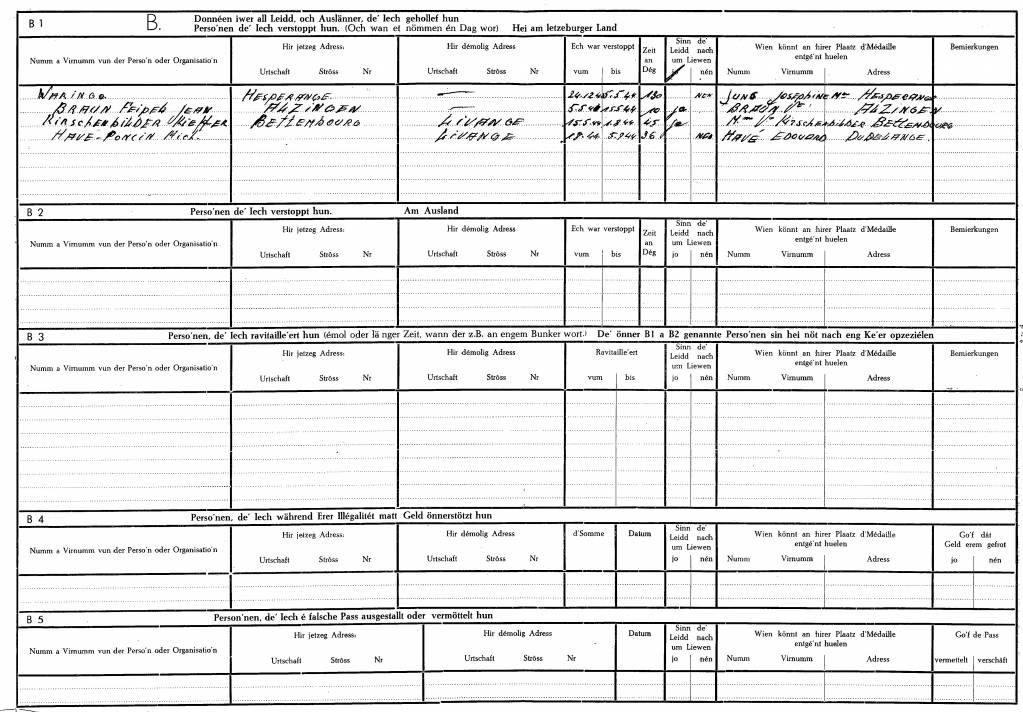 B 1 B. Donnéen iwer all Leidd, och Auslänner, de' Iech gehollef hun
Perso'nen de' Iech verstoppt hun. (Och wan et nömmen én Dag wor) Hei am letzeburger Land
Numm a Virnumm vun der Perso'n oder Organisatio'n
Hir jetzeg Adress:
Urtschaft Ströss Nr
Hir démolig Adress
Urtschaft Ströss Nr
Ech war verstoppt
vum bis
Zeit
an
Dég
Sinn de'
Leidd nach
um Liewen
jo nén
Wien könnt an hirer Plaatz d'Médaille
entgé'nt huelen
Numm Virnumm Adress
Bemierkungen
WARINGO HESPERANGE — 24.12.43 5.5.44 130 NEN JUNG JOSEPHINE Me HESPERANGE
BRAUN FEIPEL JEAN ALZINGEN — 5.5.44 15.5.44 10 jo BRAUN Ve ALZINGEN
KIRSCHENBILDER KIEFFER BETTEMBOURG LIVANGE 15.5.44 1.7.44 45 jo Mme Ve KIRSCHENBILDER BETTEMBOURG
HAVÉ-PONCIN Mich. LIVANGE 5.9.44 36 NEN HAVÉ EDOUARD DUDELANGE.
B 2 Perso'nen de' Iech verstoppt hun. Am Ausland
Numm a Virnumm vun der Perso'n oder Organisatio'n
Hir jetzeg Adress:
Urtschaft Ströss Nr
Hir démolig Adress
Urtschaft Ströss Nr
Ech war verstoppt
vum bis
Zeit
an
Dég
Sinn de'
Leidd nach
um Liewen
jo nén
Wien könnt an hirer Plaatz d'Médaille
entgé'nt huelen
Numm Virnumm Adress
Bemierkungen
B 3 Perso'nen, de' Iech ravitaille'ert hun (émol oder lä nger Zeit, wann der z.B. an engem Bunker wort.) De' önner B1 a B2 genannte Perso'nen sin hei nöt nach eng Ke'er opzeziélen
Numm a Virnumm vun der Perso'n oder Organisatio'n
Hir jetzeg Adress:
Urtschaft Ströss Nr
Hir démolig Adress
Urtschaft Ströss Nr
Ravitaille'ert
vum bis
Sinn de'
Leidd nach
um Liewen
jo nén
Wien könnt an hirer Plaatz d'Médaille
entgé'nt huelen
Numm Virnumm Adress
Bemierkungen
B 4 Perso'nen, de' Iech während Erer Illégalitét matt Geld önnerstötzt hun
Numm a Virnumm vun der Perso'n oder Organisatio'n
Hir jetzeg Adress:
Urtschaft Ströss Nr
Hir démolig Adress
Urtschaft Ströss Nr
d'Somme
Datum
Sinn de'
Leidd nach
um Liewen
jo nén
Wien könnt an hirer Plaatz d'Médaille
entgé'nt huelen
Numm Virnumm Adress
Go'f dât
Geld erem gefrot
jo nén
B 5 Person'nen, de' Iech é falsche Pass ausgestallt oder vermöttelt hun
Numm a Virnumm vun der Perso'n oder Organisatio'n
Hir jetzeg Adress:
Urtschaft Ströss Nr
Hir démolig Adress:
Urtschaft Ströss Nr
Datum
Sinn de'
Leidd nach
um Liewen
jo nén
Wien könnt an hirer Plaatz d'Médaille
entgé'nt huelen
Numm Virnumm Adress
Go'f de Pass
vermettelt verschäft